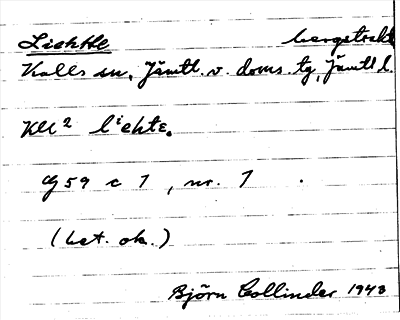 Liehtte bergstrakt
Kalls sn, Jämtl. v. doms. tg, Jämtl l.
KU 2 liehtɛ.
G 59 c 7, nr. 7 .
(bet. ok.)
Björn Collinder 1943